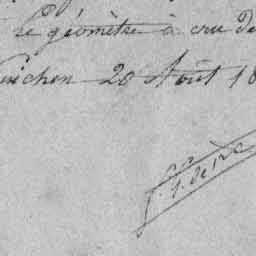 le géomètre à cru de
uichen 20 Août 18